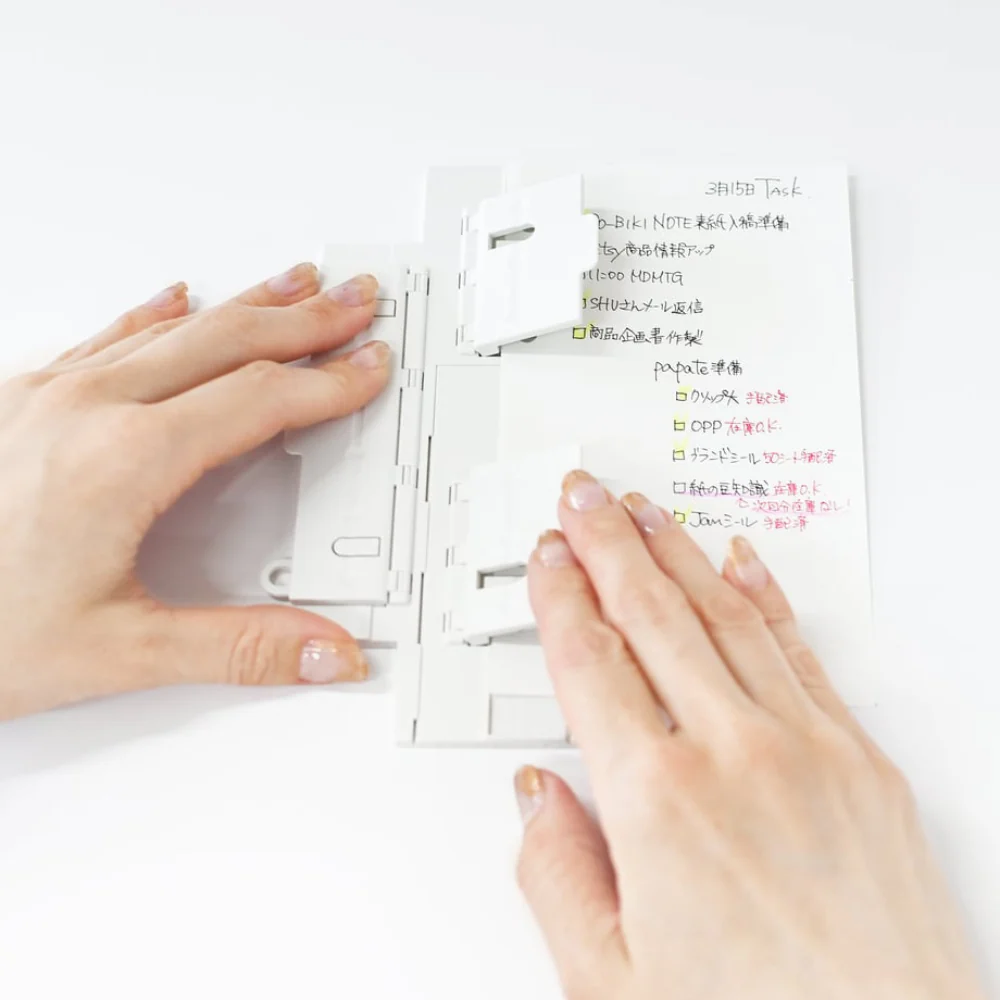 3月15日 Task
o-BIKI NOTE 表紙入稿準備
tsy商品情報アップ
11:00 MDMTG
SHUさんメール返信
商品企画書作製!!
papate準備
クリップ大 手配済
OPP 在庫O.K
ブランドシール 50シート手配済
紙の豆知識 在庫O.K
次回分在庫ナシ!
Jamシール 手配済